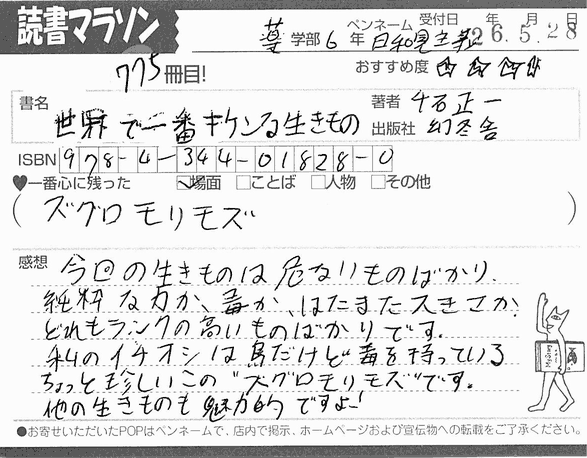 読書マラソン
775冊目!
薬学部6年 ペンネーム 日和見主義 受付日 26年5月28日
おすすめ度 ☆☆☆☆
書名 世界で一番キケンな生きもの
著者 千石正一
出版社 幻冬舎
ISBN 978-4-344-01828-0
♥一番心に残った ☑場面 □ことば □人物 □その他
(ズグロモリモズ)
感想 今回の生きものは危ないものばかり.
純粋な力か、毒か、はたまた大きさか.
どれもランクの高いものばかりです.
私のイチオシは鳥だけど毒を持っている
ちょっと珍しいこの"ズグロモリモズ"です.
他の生きものも魅力的ですよ!
●お寄せいただいたPOPはペンネームで、店内で掲示、ホームページおよび宣伝物への転載をご了承ください。